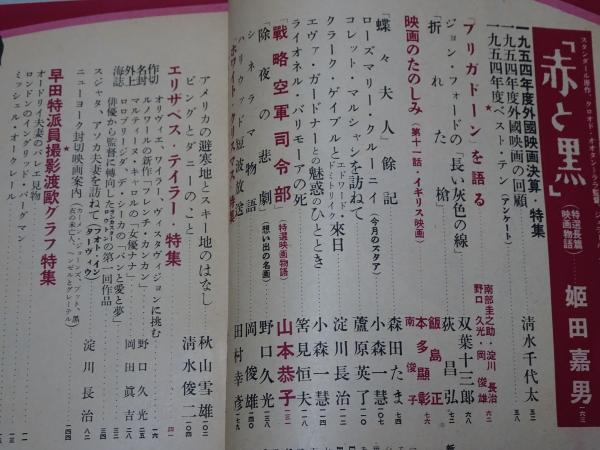 スタンダール原作、クロオド・オオタン=ララ監督
「赤と黒」
特選長篇
映画物語
姫田嘉男
一九五四年度外國映画決算・特集
一九五四年度外國映画の回顧
清水千代太
一九五四年度ベスト・テン（アンケート）
「ブリガドーン」を語る
南部圭之助・淀川長治
野口久光・岡俊雄
ジョン・フォードの「長い灰色の線」
双葉十三郎
「折れた槍」
荻昌弘
映画のたのしみ（第十一話・イギリス映画）
飯島正
本多顕彰
南俊子
「蝶々夫人」餘記
森田たま
ローズマリー・クルーニイ（今月のスタア）
小森一慧
コレット・マルシャンを訪ねて
蘆原英了
クラーク・ゲイブルとエドワード・ドミトリイク來日
淀川長治
エヴァ・ガードナーとの魅惑のひととき
小森一慧
ライオネル・バリモーアの死
筈見恒夫
「戰略空軍司令部」（特選映画物語）
山本恭子
「除夜の悲劇」（想い出の名画）
野口久光
シネラマ物語
岡俊雄
ハリウッド短波放送
田村幸彦
「ホワイト・クリスマス」特集
アメリカの避寒地とスキー地のはなし
秋山雪雄
ビングとダニーのこと
清水俊二
エリザベス・テイラー・特集
オリヴィエ、ワイラー、ヴィスタヴィジョンに挑む
ルノワールの新作「フレンチ・カンカン」
野口久光
マルティーヌ・キャロルの「女優ナナ」
岡田眞吉
ロロブリジダ、デ・シーカの「パンと愛と夢」
俳優から監督に轉向したロートンの第一回作品
スジャタ、アソカ夫妻を訪ねて
ニューヨーク封切映画案内
淀川長治
早田特派員撮影渡歐グラフ特集
オードリイ夫妻のバレエ見物
ロンドンのイングリッド・バーグマン
ミッシェル・オークレール